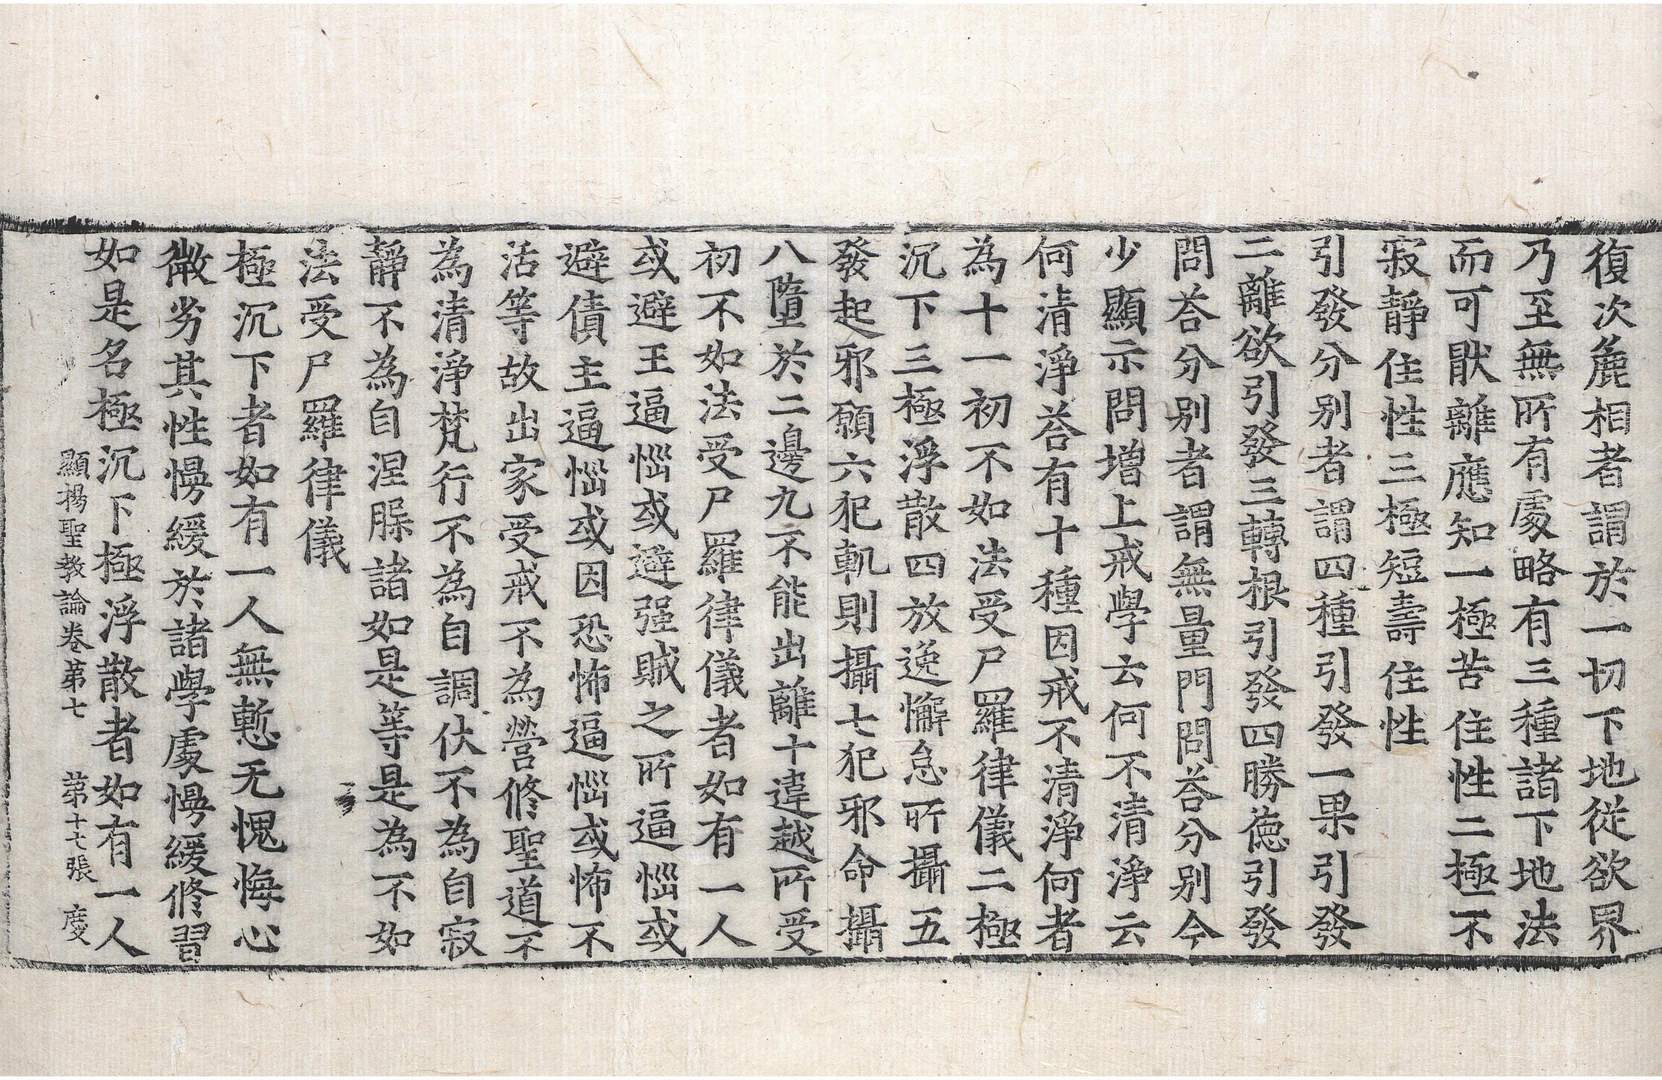 復次麁相者謂於一切下地從欲界
乃至無所有處略有三種諸下地法
而可猒離應知一極苦住性二極不
寂靜住性三極短壽住性
引發分別者謂四種引發一果引發
二離欲引發三轉根引發四勝德引發
問荅分別者謂無量門問荅分別今
少顯示問增上戒學云何不清淨云
何清淨荅有十種因戒不清淨何者
為十一初不如法受尸羅律儀二極
沉下三極浮散四放逸懈怠所攝五
發起邪願六犯軌則攝七犯邪命攝
八墮於二邊九不能出離十違越所受
初不如法受尸羅律儀者如有一人
或避王逼惱或避强賊之所逼惱或
避債主逼惱或因恐怖逼惱或怖不
活等故出家受戒不為營修聖道不
為清淨梵行不為自調伏不為自寂
靜不為自涅槃諸如是等是為不如
法受尸羅律儀
極沉下者如有一人無慙无愧悔心
微劣其性慢緩於諸學處慢緩修習
如是名極沉下極浮散者如有一人
顯揚聖教論卷第七 第十七張 度